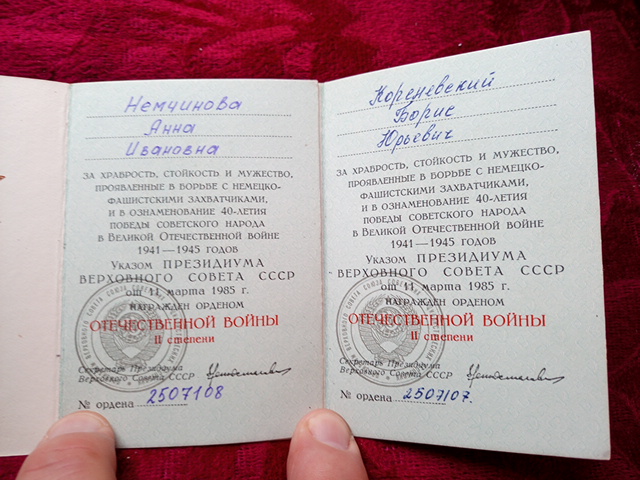 Немчинова
Анна
Ивановна
ЗА ХРАБРОСТЬ, СТОЙКОСТЬ И МУЖЕСТВО,
ПРОЯВЛЕННЫЕ В БОРЬБЕ С НЕМЕЦКО-
ФАШИСТСКИМИ ЗАХВАТЧИКАМИ,
И В ОЗНАМЕНОВАНИЕ 40-ЛЕТИЯ
ПОБЕДЫ СОВЕТСКОГО НАРОДА
В ВЕЛИКОЙ ОТЕЧЕСТВЕННОЙ ВОЙНЕ
1941—1945 ГОДОВ
УКАЗОМ ПРЕЗИДИУМА
ВЕРХОВНОГО СОВЕТА СССР
от 11 марта 1985 г.
НАГРАЖДЕН ОРДЕНОМ
ОТЕЧЕСТВЕННОЙ ВОЙНЫ
II степени
Секретарь Президиума
Верховного Совета СССР
№ ордена 2507108
Кореневский
Борис
Юрьевич
ЗА ХРАБРОСТЬ, СТОЙКОСТЬ И МУЖЕСТВО,
ПРОЯВЛЕННЫЕ В БОРЬБЕ С НЕМЕЦКО-
ФАШИСТСКИМИ ЗАХВАТЧИКАМИ,
И В ОЗНАМЕНОВАНИЕ 40-ЛЕТИЯ
ПОБЕДЫ СОВЕТСКОГО НАРОДА
В ВЕЛИКОЙ ОТЕЧЕСТВЕННОЙ ВОЙНЕ
1941—1945 ГОДОВ
УКАЗОМ ПРЕЗИДИУМА
ВЕРХОВНОГО СОВЕТА СССР
от 11 марта 1985 г.
НАГРАЖДЕН ОРДЕНОМ
ОТЕЧЕСТВЕННОЙ ВОЙНЫ
II степени
Секретарь Президиума
Верховного Совета СССР
№ ордена 2507107